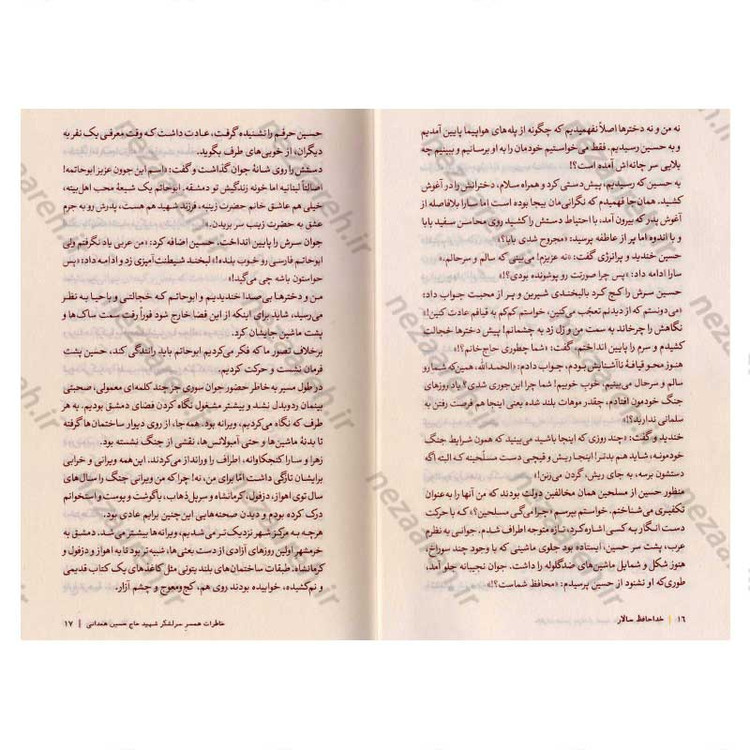 نه من و نه دخترها اصلاً نفهمیدیم که چگونه از پله‌های هواپیما پایین آمدیم
و به حسین رسیدیم. فقط می‌خواستیم خودمان را به او برسانیم و ببینیم چه
بلایی سر چانه‌اش آمده است؟!
به حسین که رسیدیم، پیش‌دستی کرد و همراه سلام، دخترانش را در آغوش
کشید. همان جا فهمیدم که نگرانی‌مان بیجا بوده است اما سارا بلافاصله از
آغوش پدر که بیرون آمد. با احتیاط دستش را کشید روی محاسن سفید بابا
و با اندوه اما پر از عاطفه پرسید: «مجروح شدی بابا؟»
حسین خندید و پرانرژی گفت: «نه عزیزم! می‌بینی که سالم و سرحالم.»
سارا ادامه داد: «پس چرا صورتت رو پوشونده بودی؟!»
حسین سرش را کج کرد بالبخندی شیرین و پر از محبت جواب داد:
«می‌دونستم که از دیدنم تعجّب می‌کنین، خواستم کم‌کم به قیافم عادت کنین!»
نگاهش را چرخاند به سمت من و زُل زد به چشمانم! پیش دخترها خجالت
کشیدم و سرم را پایین انداختم. گفت: «شما چطوری حاج‌خانم؟!»
هنوز محو قیافهٔ ناآشنایش بودم، جواب دادم: «الحمدلله، همین‌که شما رو
سالم و سرحال می‌بینیم، خوب خوبیم! شما چرا این‌جوری شدی؟ یاد روزهای
جنگ خودمون افتادم، چقدر موهات بلند شده یعنی اینجا هم فرصت رفتن به
سلمانی ندارید؟!»
خندید و گفت: «چند روزی که اینجا باشید می‌بینید که همون شرایط جنگ
خودمونه، شاید هم بدتر! اینجا ریش و قیچی دست مسلّحینه که البته اگه
دستشون برسه، به جای ریش، گردن می‌زنن!»
منظور حسین از مسلحین همان مخالفین دولت بودند که من آنها را به‌عنوان
تکفیری می‌شناختم. خواستم بپرسم «چرا می‌گی مسلحین؟» که با حرکت
دست انگار به کسی اشاره کرد، تازه متوجه اطراف شدم. جوانی به نظرم
عرب، پشت سر حسین، ایستاده بود جلوی ماشینی که با وجود چند سوراخ،
هنوز شکل و شمایل ماشین‌های ضدگلوله را داشت. جوان نجیبانه جلو آمد،
طوری‌که او نشنود از حسین پرسیدم: «محافظ شماست؟!»
۱۶ | خداحافظ سالار
حسین حرفم را نشنیده گرفت، عادت داشت که وقت معرفی یک نفر به
دیگران، از خوبی‌های طرف بگوید.
دستش را روی شانهٔ جوان گذاشت و گفت: «اسم این جوون عزیز ابوحاتمه!
اصالتاً لبنانیه اما خونه زندگیش تو دمشقه. ابوحاتم یک شیعهٔ محب اهل‌بیته،
خیلی هم عاشق خانم حضرت زینبه، فرزند شهید هم هست، پدرش رو به جرم
عشق به حضرت زینب سر بریدن.»
جوان سرش را پایین انداخت. حسین اضافه کرد: «من عربی یاد نگرفتم ولی
ابوحاتم فارسی رو خوب بلده!» لبخند شیطنت‌آمیزی زد و ادامه داد: «پس
حواستون باشه چی می‌گید!»
من و دخترها بی‌صدا خندیدیم و ابوحاتم که خجالتی و باحیا به نظر
می‌رسید، شاید برای اینکه از این فضا خارج شود فوراً رفت سمت ساک‌ها و
پشت ماشین جایشان کرد.
برخلاف تصور ما که فکر می‌کردیم ابوحاتم باید رانندگی کند، حسین پشت
فرمان نشست و حرکت کردیم.
در طول مسیر به خاطر حضور جوان سوری جز چند کلمه‌ای معمولی، صحبتی
بینمان ردوبدل نشد و بیشتر مشغول نگاه کردن فضای دمشق بودیم. به هر
طرف که نگاه می‌کردم، ویرانه بود. همه‌جا، از روی دیوار ساختمان‌ها گرفته
تا بدنهٔ ماشین‌ها و حتی آمبولانس‌ها، نقشی از جنگ نشسته بود.
زهرا و سارا کنجکاوانه، اطراف را ورانداز می‌کردند. این‌همه ویرانی و خرابی
برایشان تازگی داشت امّا برای من، نه! چرا که من ویرانی جنگ را سال‌های
سال توی اهواز، دزفول، کرمانشاه و سرپل‌ذهاب، باگوشت و پوست و استخوانم
درک کرده بودم و دیدن صحنه‌هایی این‌چنین برایم عادی بود.
هرچه به مرکز شهر نزدیک‌تر می‌شدیم، ویرانه‌ها بیشتر می‌شد. دمشق به
خرمشهرِ اولین روزهای آزادی از دست بعثی‌ها، شبیه‌تر بود تا به اهواز و دزفول و
کرمانشاه. طبقات ساختمان‌های بلند بتونی مثل کاغذهای یک کتاب قدیمی
و نم‌کشیده، خوابیده بودند روی هم، کج‌ومعوج و چشم آزار.
خاطرات همسر سرلشگر شهید حاج حسین همدانی | ۱۷
nezaareh.ir